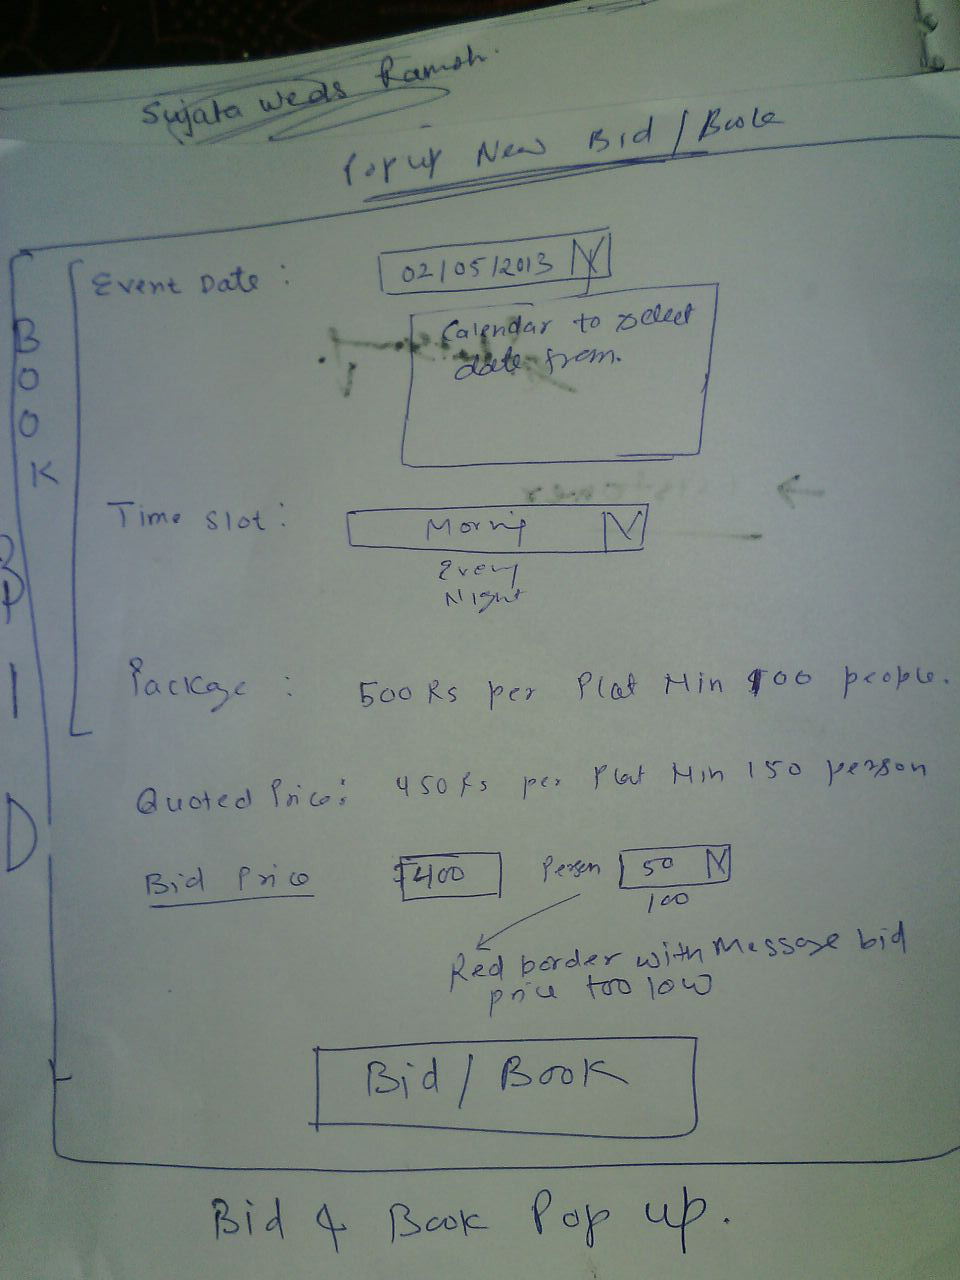 Sujata weds Ramesh.
Pop up New Bid / Book
Event Date :
02/05/2013
Calendar to select
date from.
BOOK
Time slot :
Morning
Eveng
Night
BID
Package : 500 Rs per Plat Min 100 people.
Quoted Price : 450 Rs per Plat Min 150 person
Bid Price 400 Person 50
100
Red border with Message bid
price too low
Bid / Book
Bid & Book Pop up.